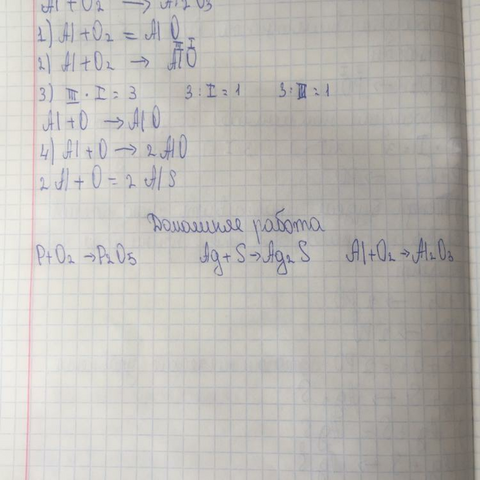 Al + O2 → Al2O3
1) Al + O2 = Al O
2) Al + O2 → AlO III I
3) III · I = 3 3 : I = 1 3 : III = 1
Al + O → AlO
4) Al + O → 2 AlO
2 Al + O = 2 Al S
Домашняя работа
P + O2 → P2O5 Ag + S → Ag2 S Al + O2 → Al2O3